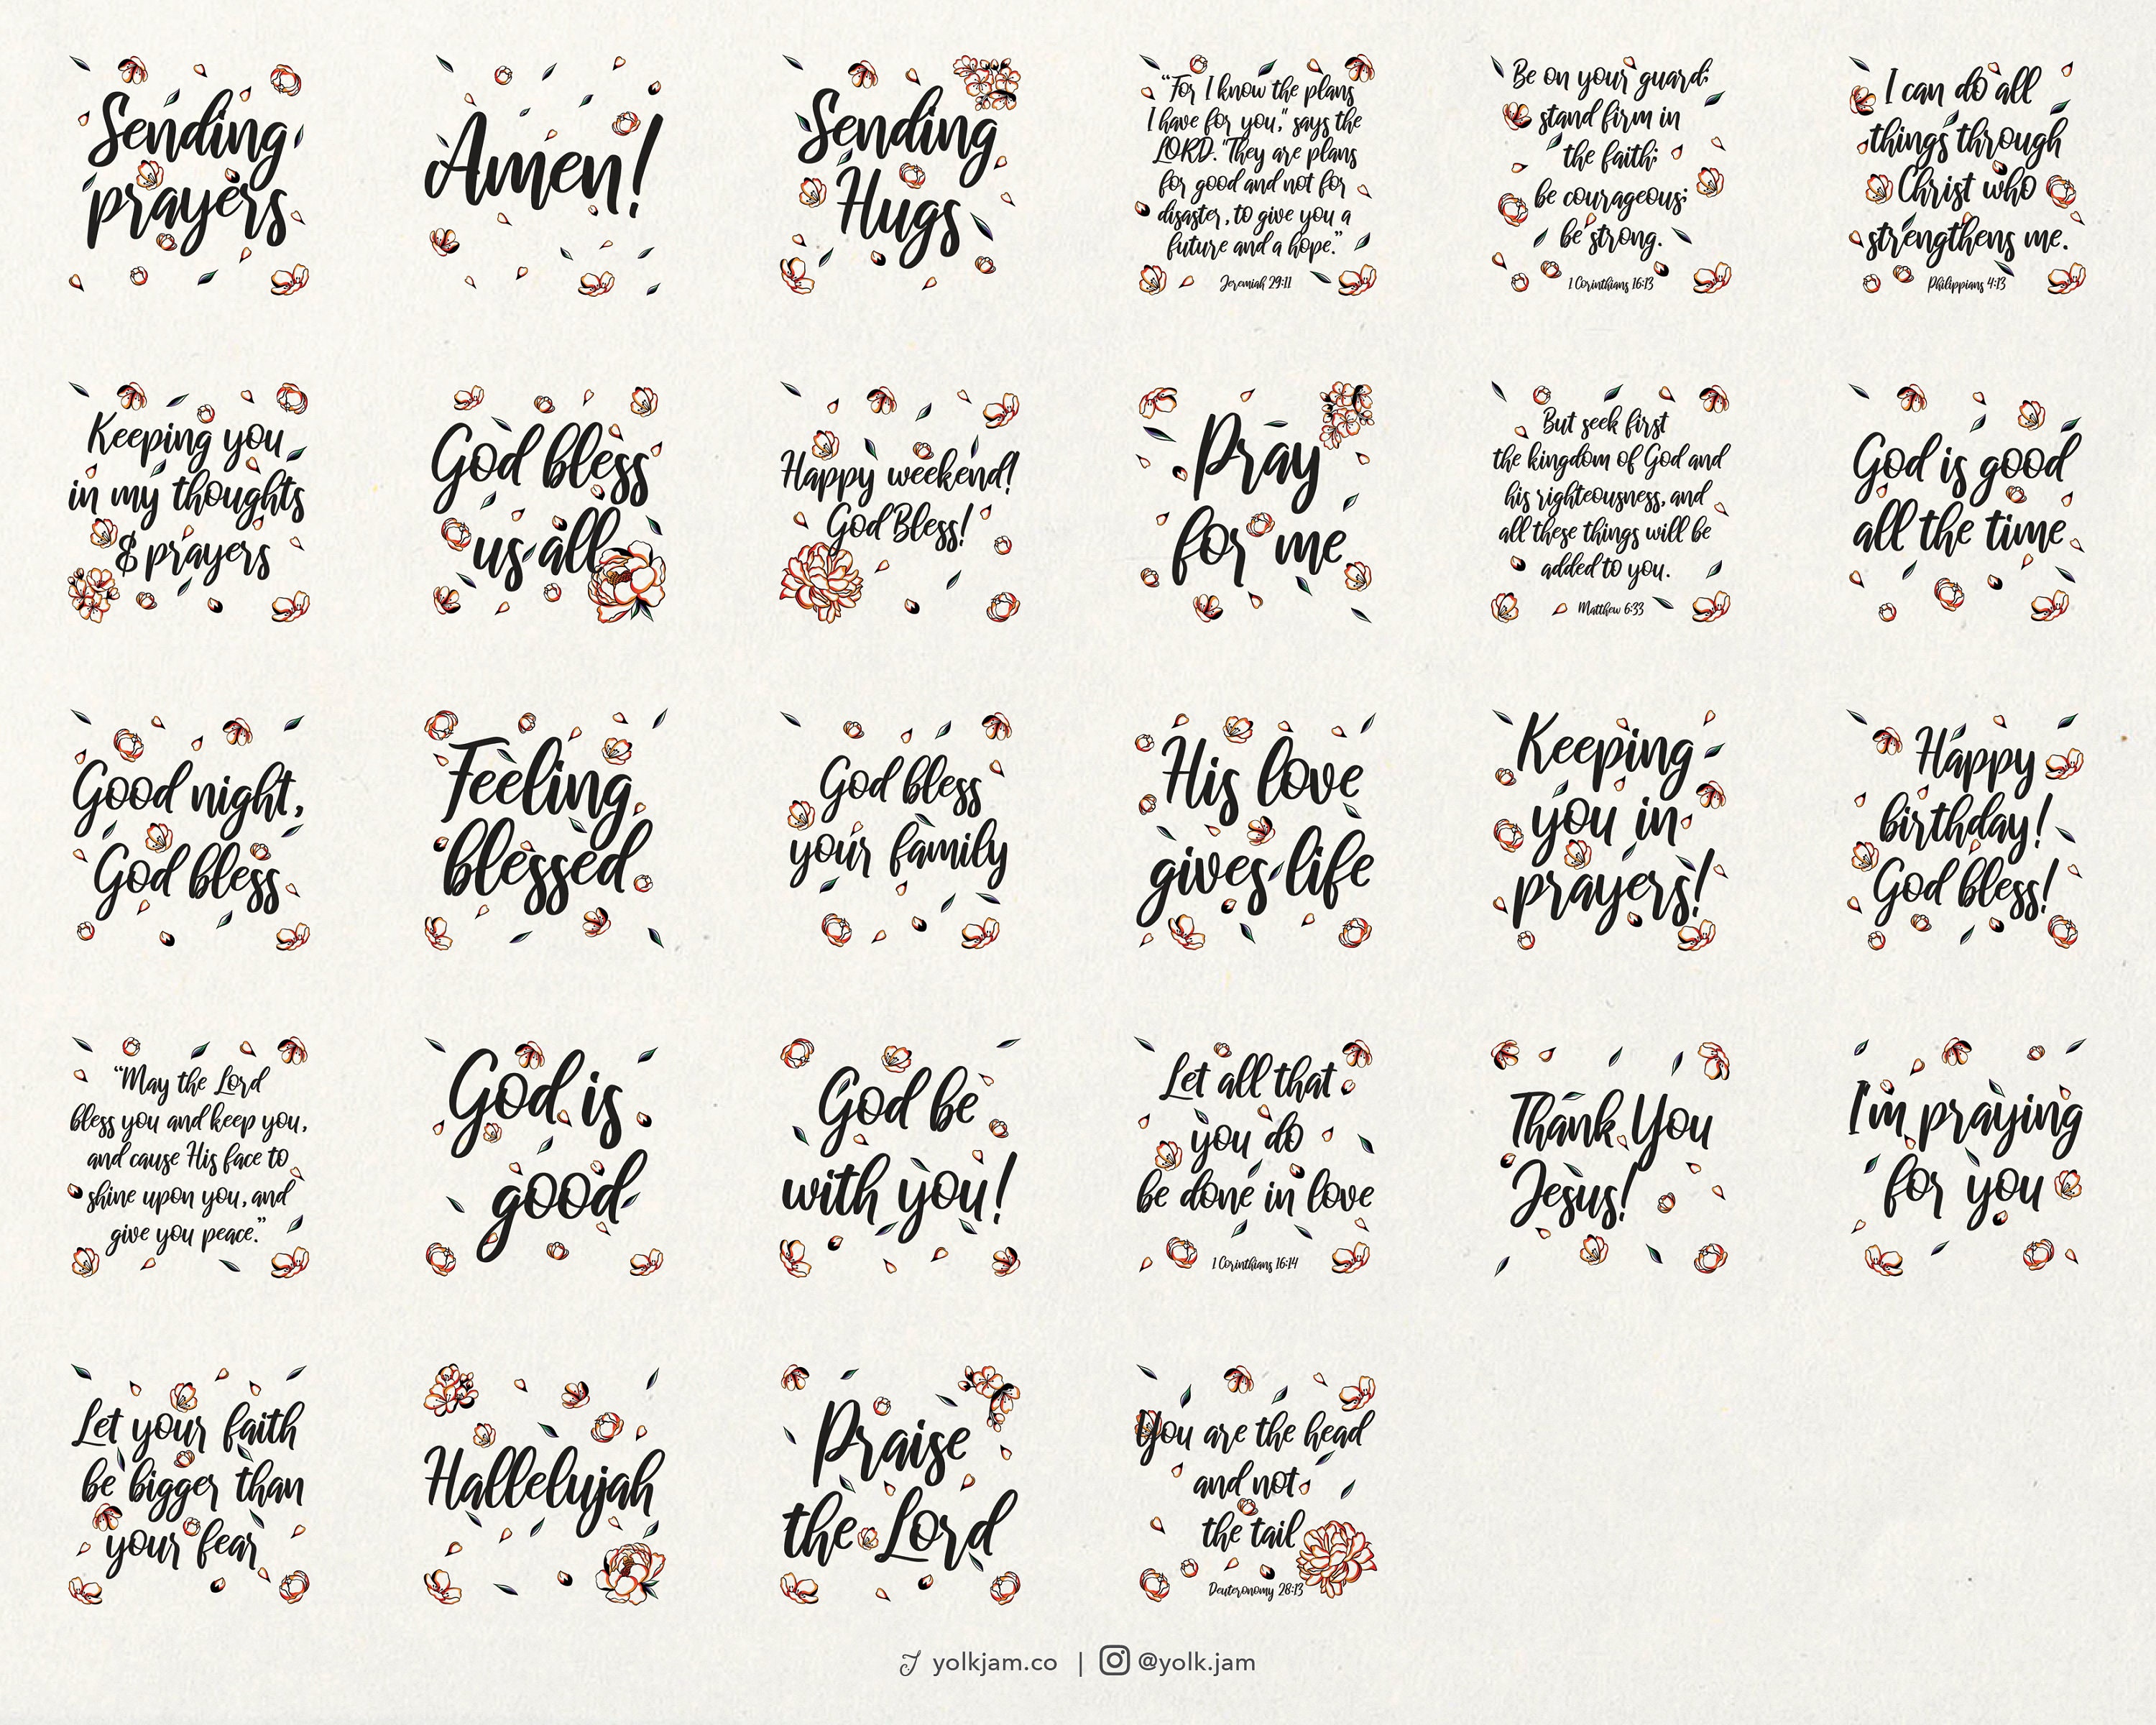 Sending
prayers
Amen!
Sending
Hugs
“For I know the plans
I have for you,” says the
LORD. “They are plans
for good and not for
disaster, to give you a
future and a hope.”
Jeremiah 29:11
Be on your guard;
stand firm in
the faith;
be courageous;
be strong.
1 Corinthians 16:13
I can do all
things through
Christ who
strengthens me.
Philippians 4:13
Keeping you
in my thoughts
& prayers
God bless
us all
Happy weekend!
God Bless!
Pray
for me
But seek first
the kingdom of God and
his righteousness, and
all these things will be
added to you.
Matthew 6:33
God is good
all the time
Good night,
God bless
Feeling
blessed
God bless
your family
His love
gives life
Keeping
you in
prayers!
Happy
birthday!
God bless!
“May the Lord
bless you and keep you,
and cause His face to
shine upon you, and
give you peace.”
God is
good
God be
with you!
Let all that
you do
be done in love
1 Corinthians 16:14
Thank You
Jesus!
I'm praying
for you
Let your faith
be bigger than
your fear
Hallelujah
Praise
the Lord
You are the head
and not
the tail
Deuteronomy 28:13
yolkjam.co | @yolk.jam